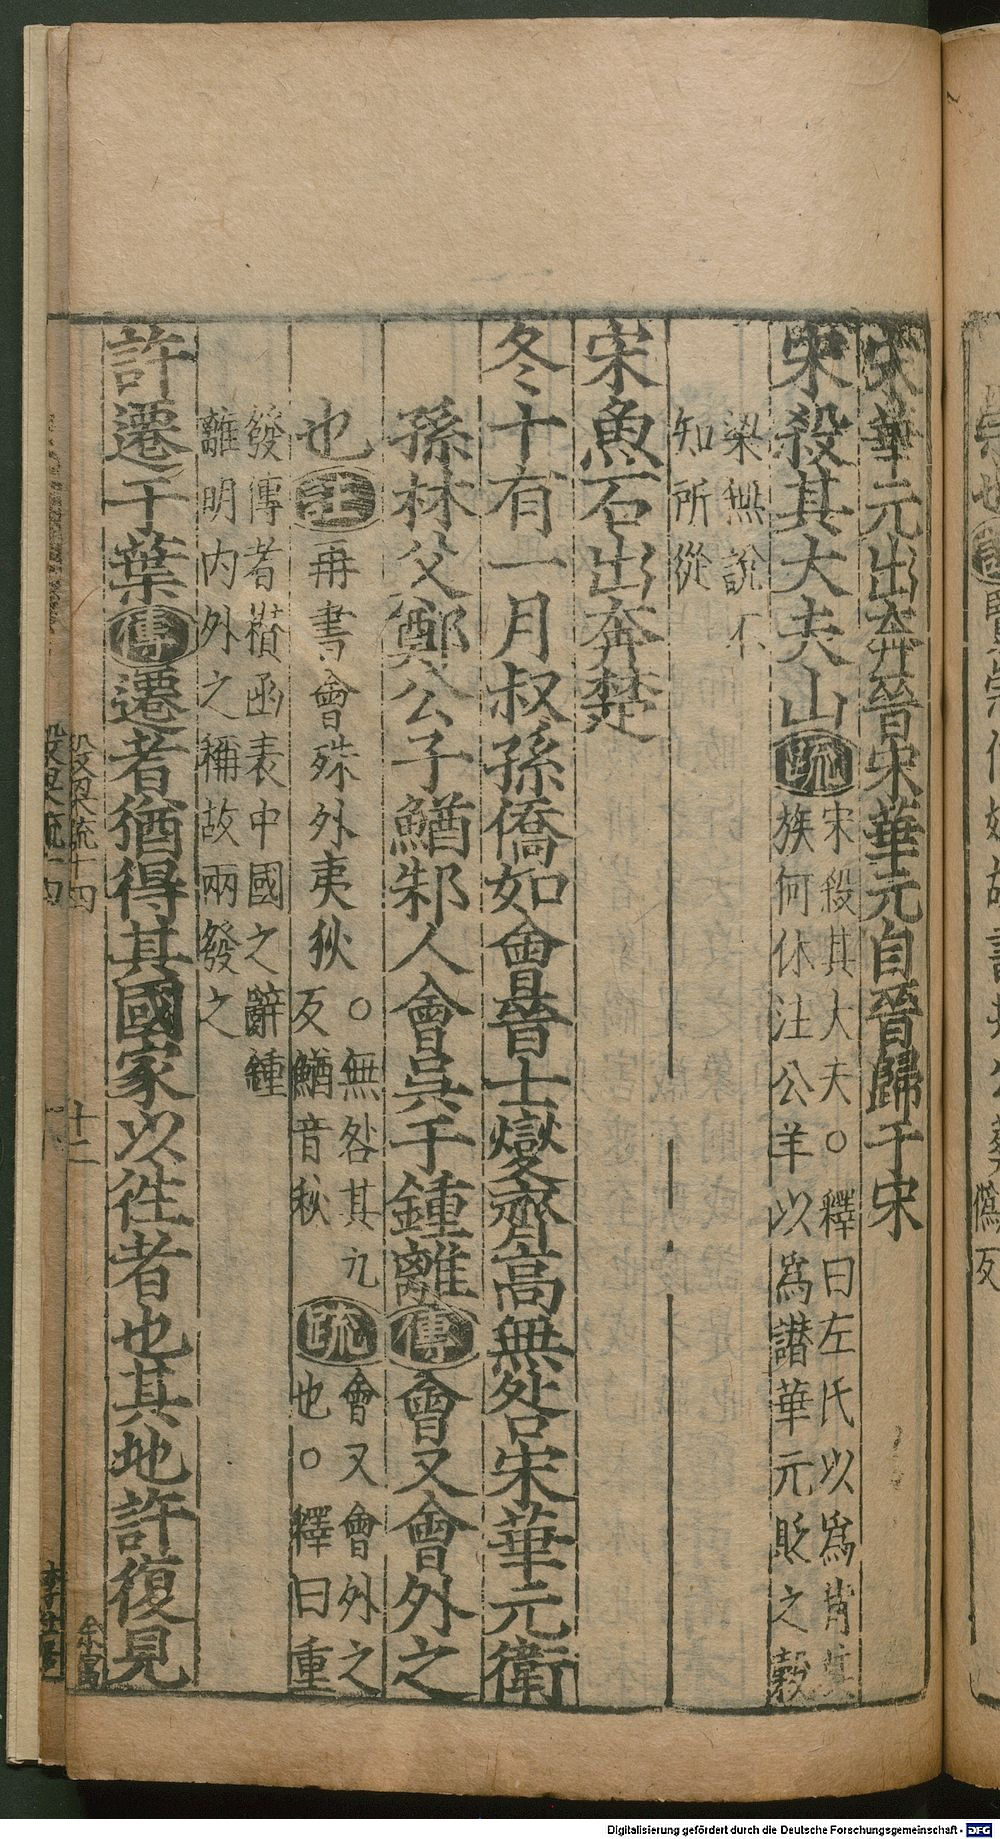 宋華元出奔晉宋華元自晉歸于宋
宋殺其大夫山疏宋殺其大夫○釋曰左氏以為背其
族何休注公羊以為譖華元貶之穀
梁無說不
知所從
宋魚石出奔楚
冬十有一月叔孫僑如會晉士燮齊高無咎宋華元衛
孫林父鄭公子鰌邾人會吳于鍾離傳會又會外之
也注再書會殊外夷狄○無咎其九
反鰌音秋疏會又會外之
也○釋曰重
發傳者楚函表中國之辭鍾
離明内外之稱故兩發之
許遷于葉傳遷者猶得其國家以徃者也其地許復見
穀梁疏十四
十二
余富
Digitalisierung gefördert durch die Deutsche Forschungsgemeinschaft - DFG